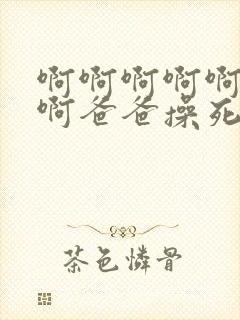 啊啊啊啊啊
啊爸爸操死
茶色憐骨